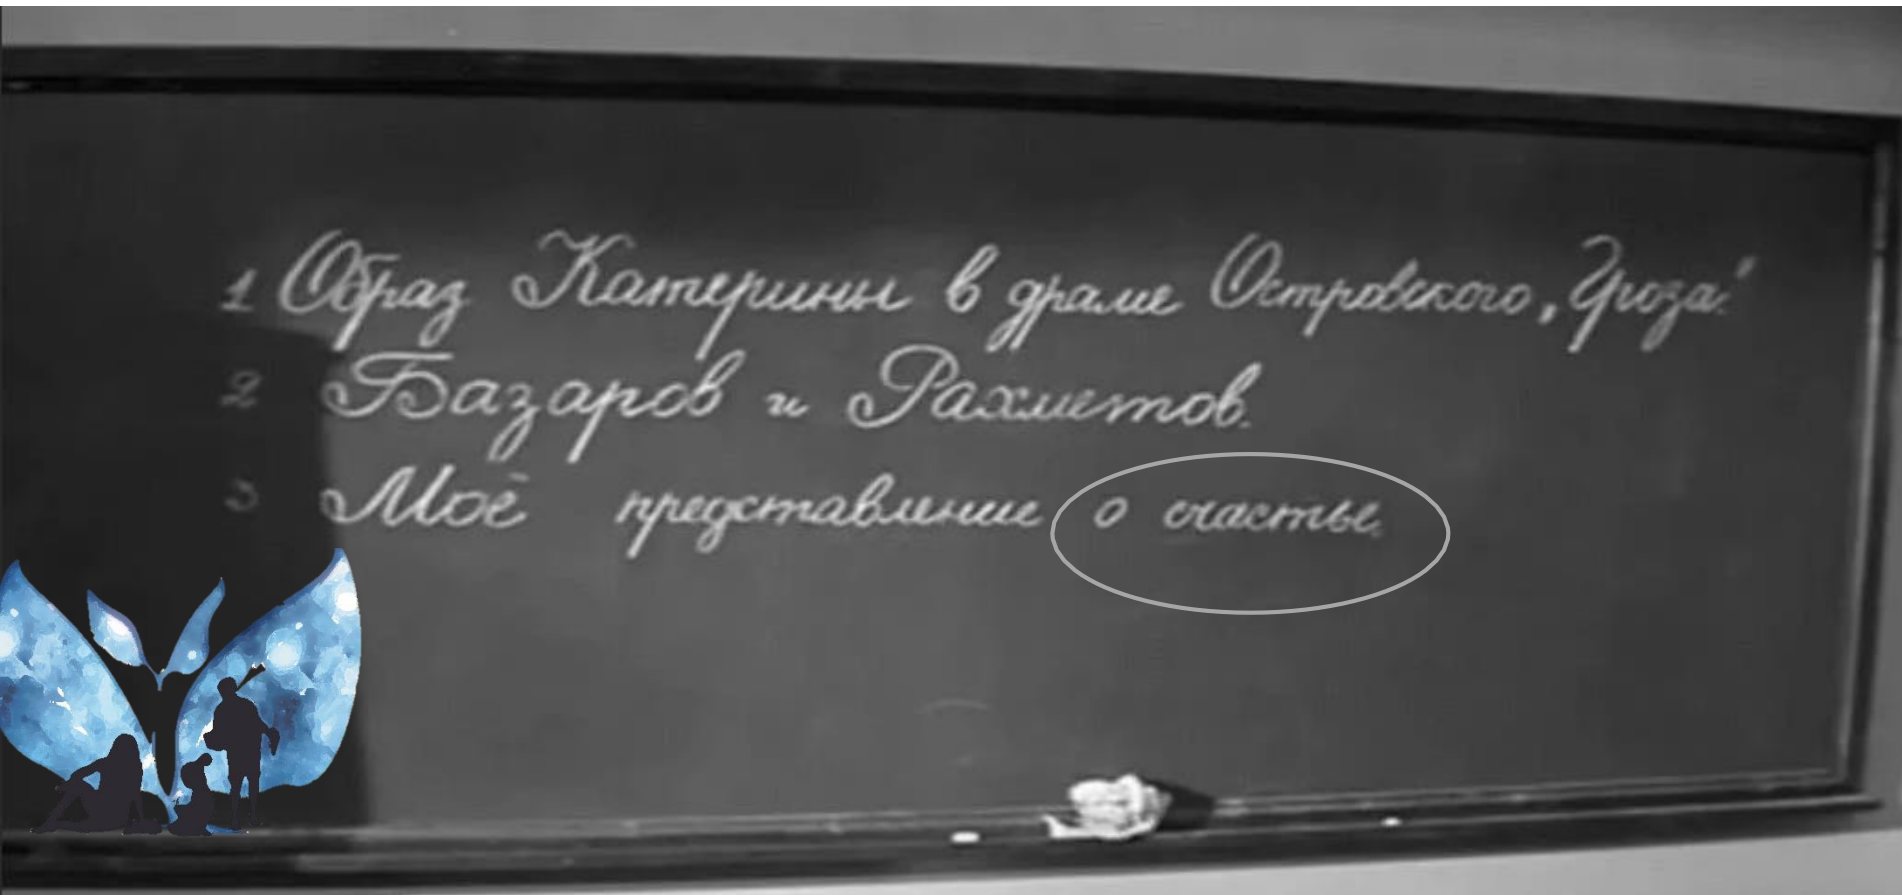 1 Образ Катерины в драме Островского „Гроза."
2 Базаров и Рахметов.
3 Моё представление о счастье.